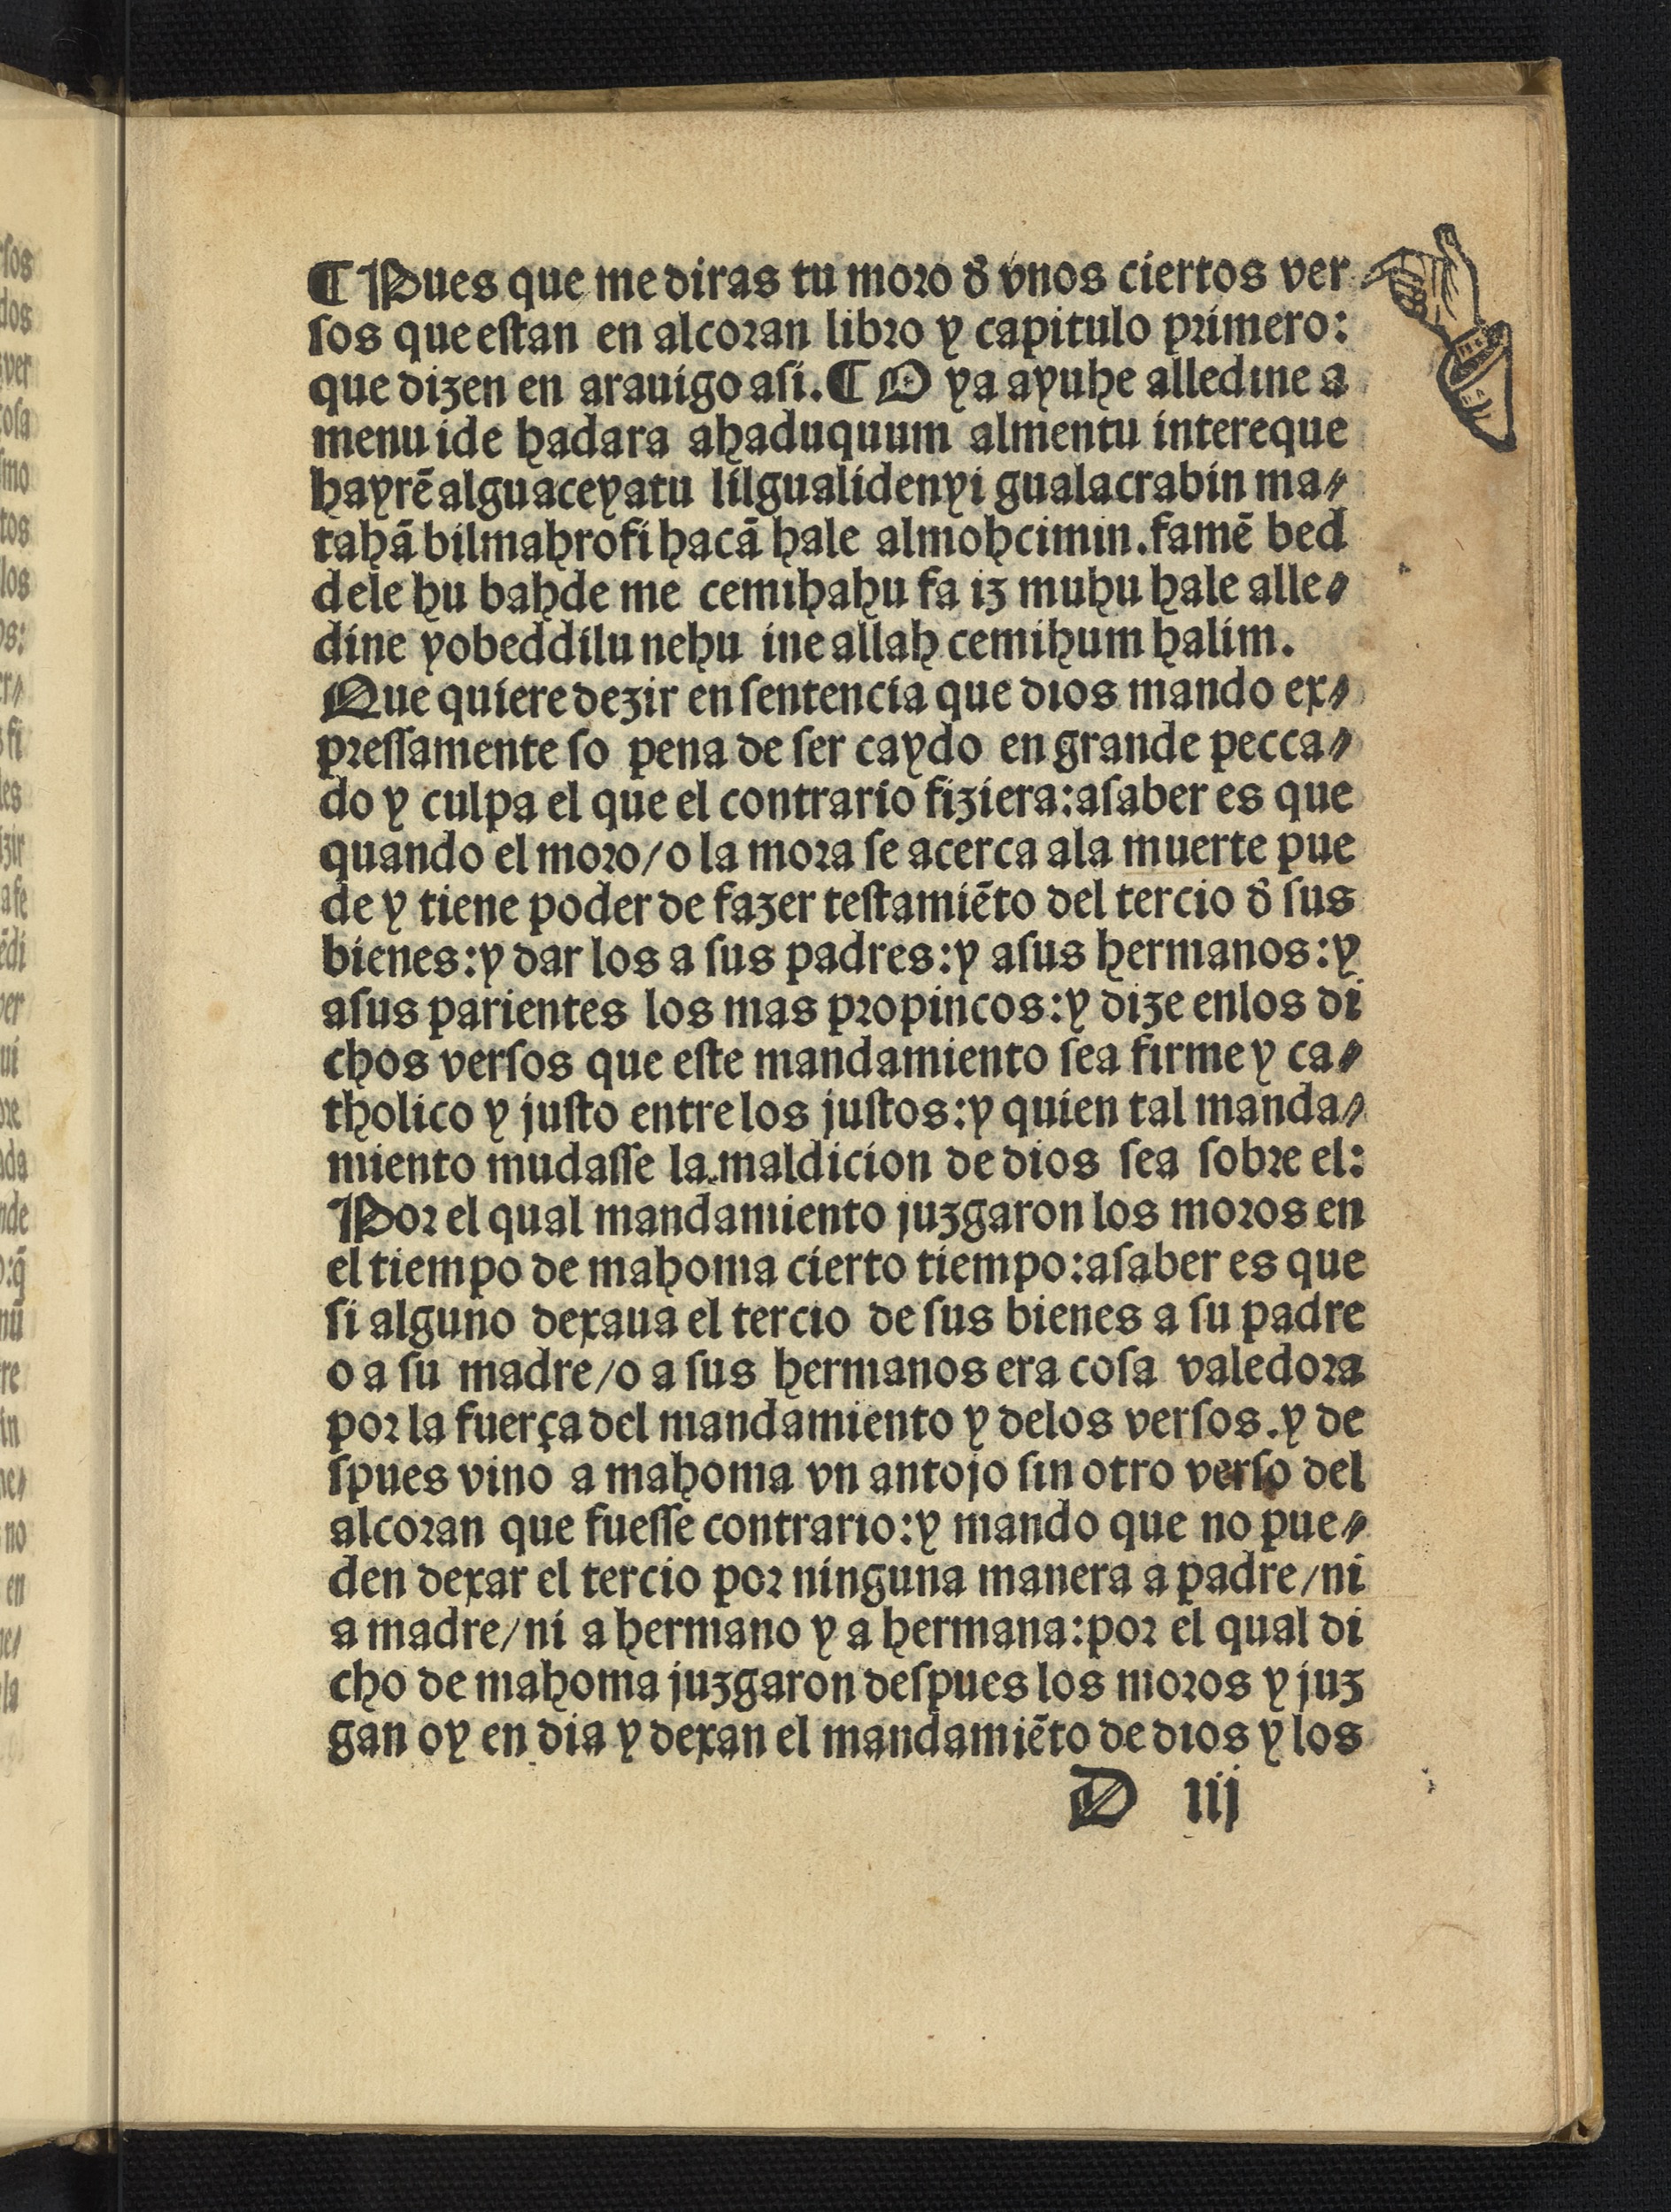 ¶ Pues que me diras tu moro đ vnos ciertos ver
ſos que eſtan en alcoran libro y capitulo primero:
que dizen en arauigo aſi. ¶ O ya ayuhe alledine a
menu ide hadara ahaduquum almentu intereque
hayrē alguaceyatu lilgualidenyi gualacrabin ma⸗
tahā bilmahrofi hacā hale almohcimin. famē bed
dele hu bahde me cemihahu fa iz muhu hale alle⸗
dine yobeddilu nehu ine allah cemihum halim.
Que quiere dezir en ſentencia que dios mando ex⸗
preſſamente ſo pena de ſer caydo en grande pecca⸗
do y culpa el que el contrario fiziera: aſaber es que
quando el moro/o la mora ſe acerca ala muerte pue
de y tiene poder de fazer teſtamiēto del tercio đ ſus
bienes: y dar los a ſus padres: y aſus hermanos: y
aſus parientes los mas propincos: y dize enlos di
chos verſos que eſte mandamiento ſea firme y ca⸗
tholico y juſto entre los juſtos: y quien tal manda⸗
miento mudaſſe la maldicion de dios ſea ſobre el:
Por el qual mandamiento juzgaron los moros en
el tiempo de mahoma cierto tiempo: aſaber es que
ſi alguno dexaua el tercio de ſus bienes a ſu padre
o a ſu madre/o a ſus hermanos era coſa valedora
por la fuerça del mandamiento y delos verſos. y de
ſpues vino a mahoma vn antojo ſin otro verſo del
alcoran que fueſſe contrario: y mando que no pue⸗
den dexar el tercio por ninguna manera a padre/ni
a madre/ni a hermano y a hermana: por el qual di
cho de mahoma juzgaron deſpues los moros y juz
gan oy en dia y dexan el mandamiēto de dios y los
D iij